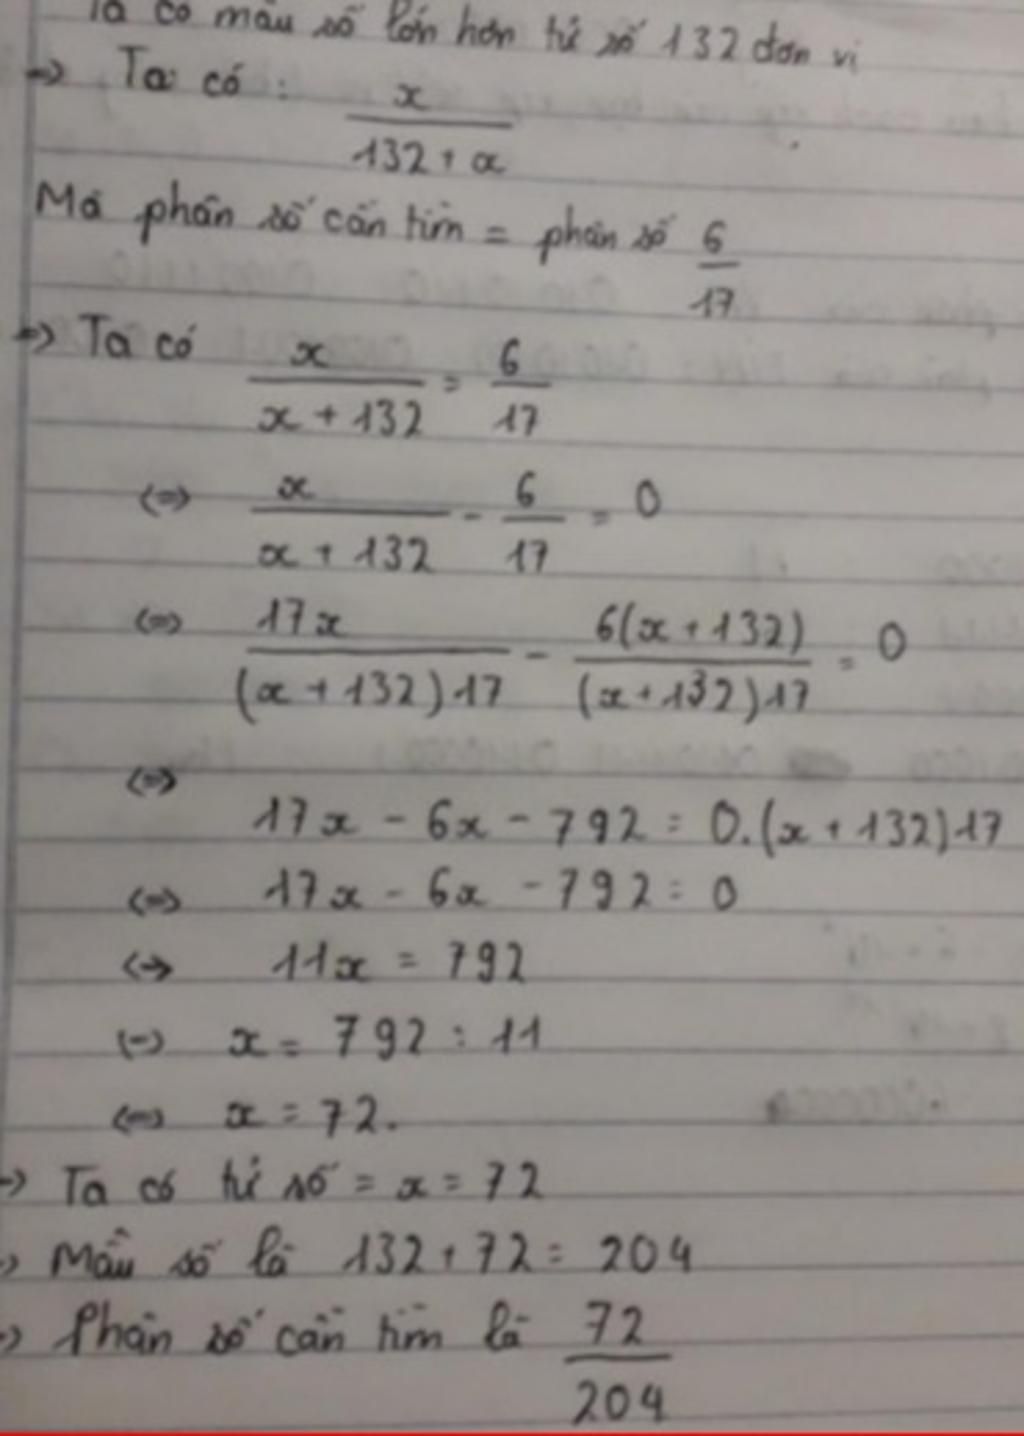 Ta có mẫu số lớn hơn tử số 132 đơn vị
=> Ta có : x / 132 + x
Mà phân số cần tìm = phân số 6 / 17
=> Ta có x / x + 132 = 6 / 17
<=> x / x + 132 - 6 / 17 = 0
<=> 17x / (x + 132)17 - 6(x + 132) / (x + 132)17 = 0
<=>
17x - 6x - 792 = 0.(x + 132)17
<=> 17x - 6x - 792 = 0
<=> 11x = 792
<=> x = 792 : 11
<=> x = 72.
=> Ta có tử số = x = 72
=> Mẫu số là 132 + 72 = 204
=> Phân số cần tìm là 72 / 204